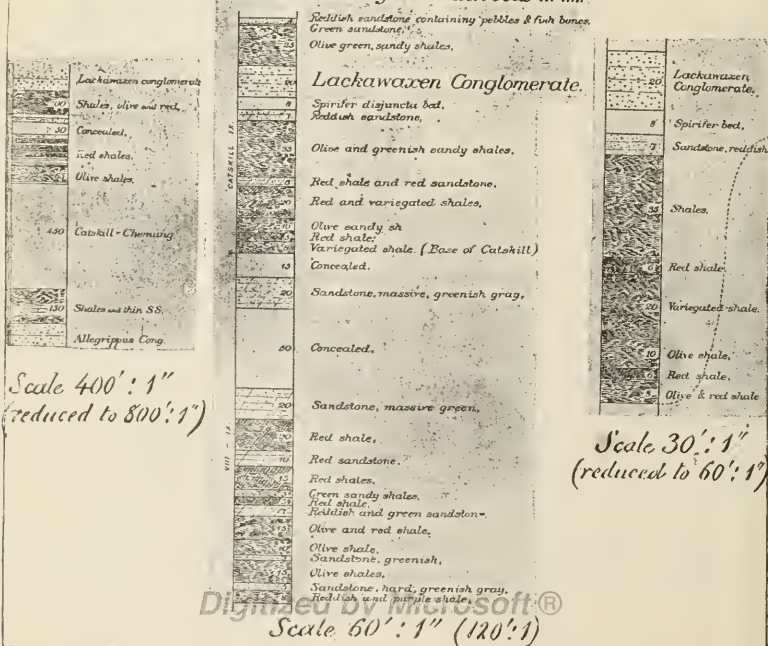 Lackawaxen conglomerate
00 Shales, olive and red,
50 Concealed,
Red shales.
Olive shales.
450 Catskill-Chemung
130 Shales and thin SS,
Allegrippas Cong.
Scale 400': 1"
(reduced to 800': 1")
Reddish sandstone containing pebbles & fish bones.
Green sandstone,
Olive green, sandy shales,
20 Lackawaxen Conglomerate.
8 Spirifer disjuncta bed,
7 Reddish sandstone,
CATSKILL IX.
35 Olive and greenish sandy shales.
6 Red shale and red sandstone,
20 Red and variegated shales,
10 Olive sandy sh
Red shale;
Variegated shale. (Base of Catskill)
15 Concealed.
20 Sandstone, massive, greenish gray,
50 Concealed,
20 Sandstone, massive green,
VIII - IX.
20 Red shale,
10 Red sandstone.
15 Red shales,
Green sandy shales,
Red shale.
Reddish and green sandston-
15 Olive and red shale,
Olive shale,
Sandstone, greenish,
15 Olive shales,
Sandstone, hard, greenish gray,
Reddish and purple shale,
Scale 60': 1" (120':1)
20 Lackawaxen
Conglomerate,
8 Spirifer bed,
7 Sandstone, reddish
35 Shales,
6 Red shale,
20 Variegated shale.
10 Olive shale,
6 Red shale,
5 Olive & red shale
Scale 30': 1"
(reduced to 60': 1")
Digitized by Microsoft®